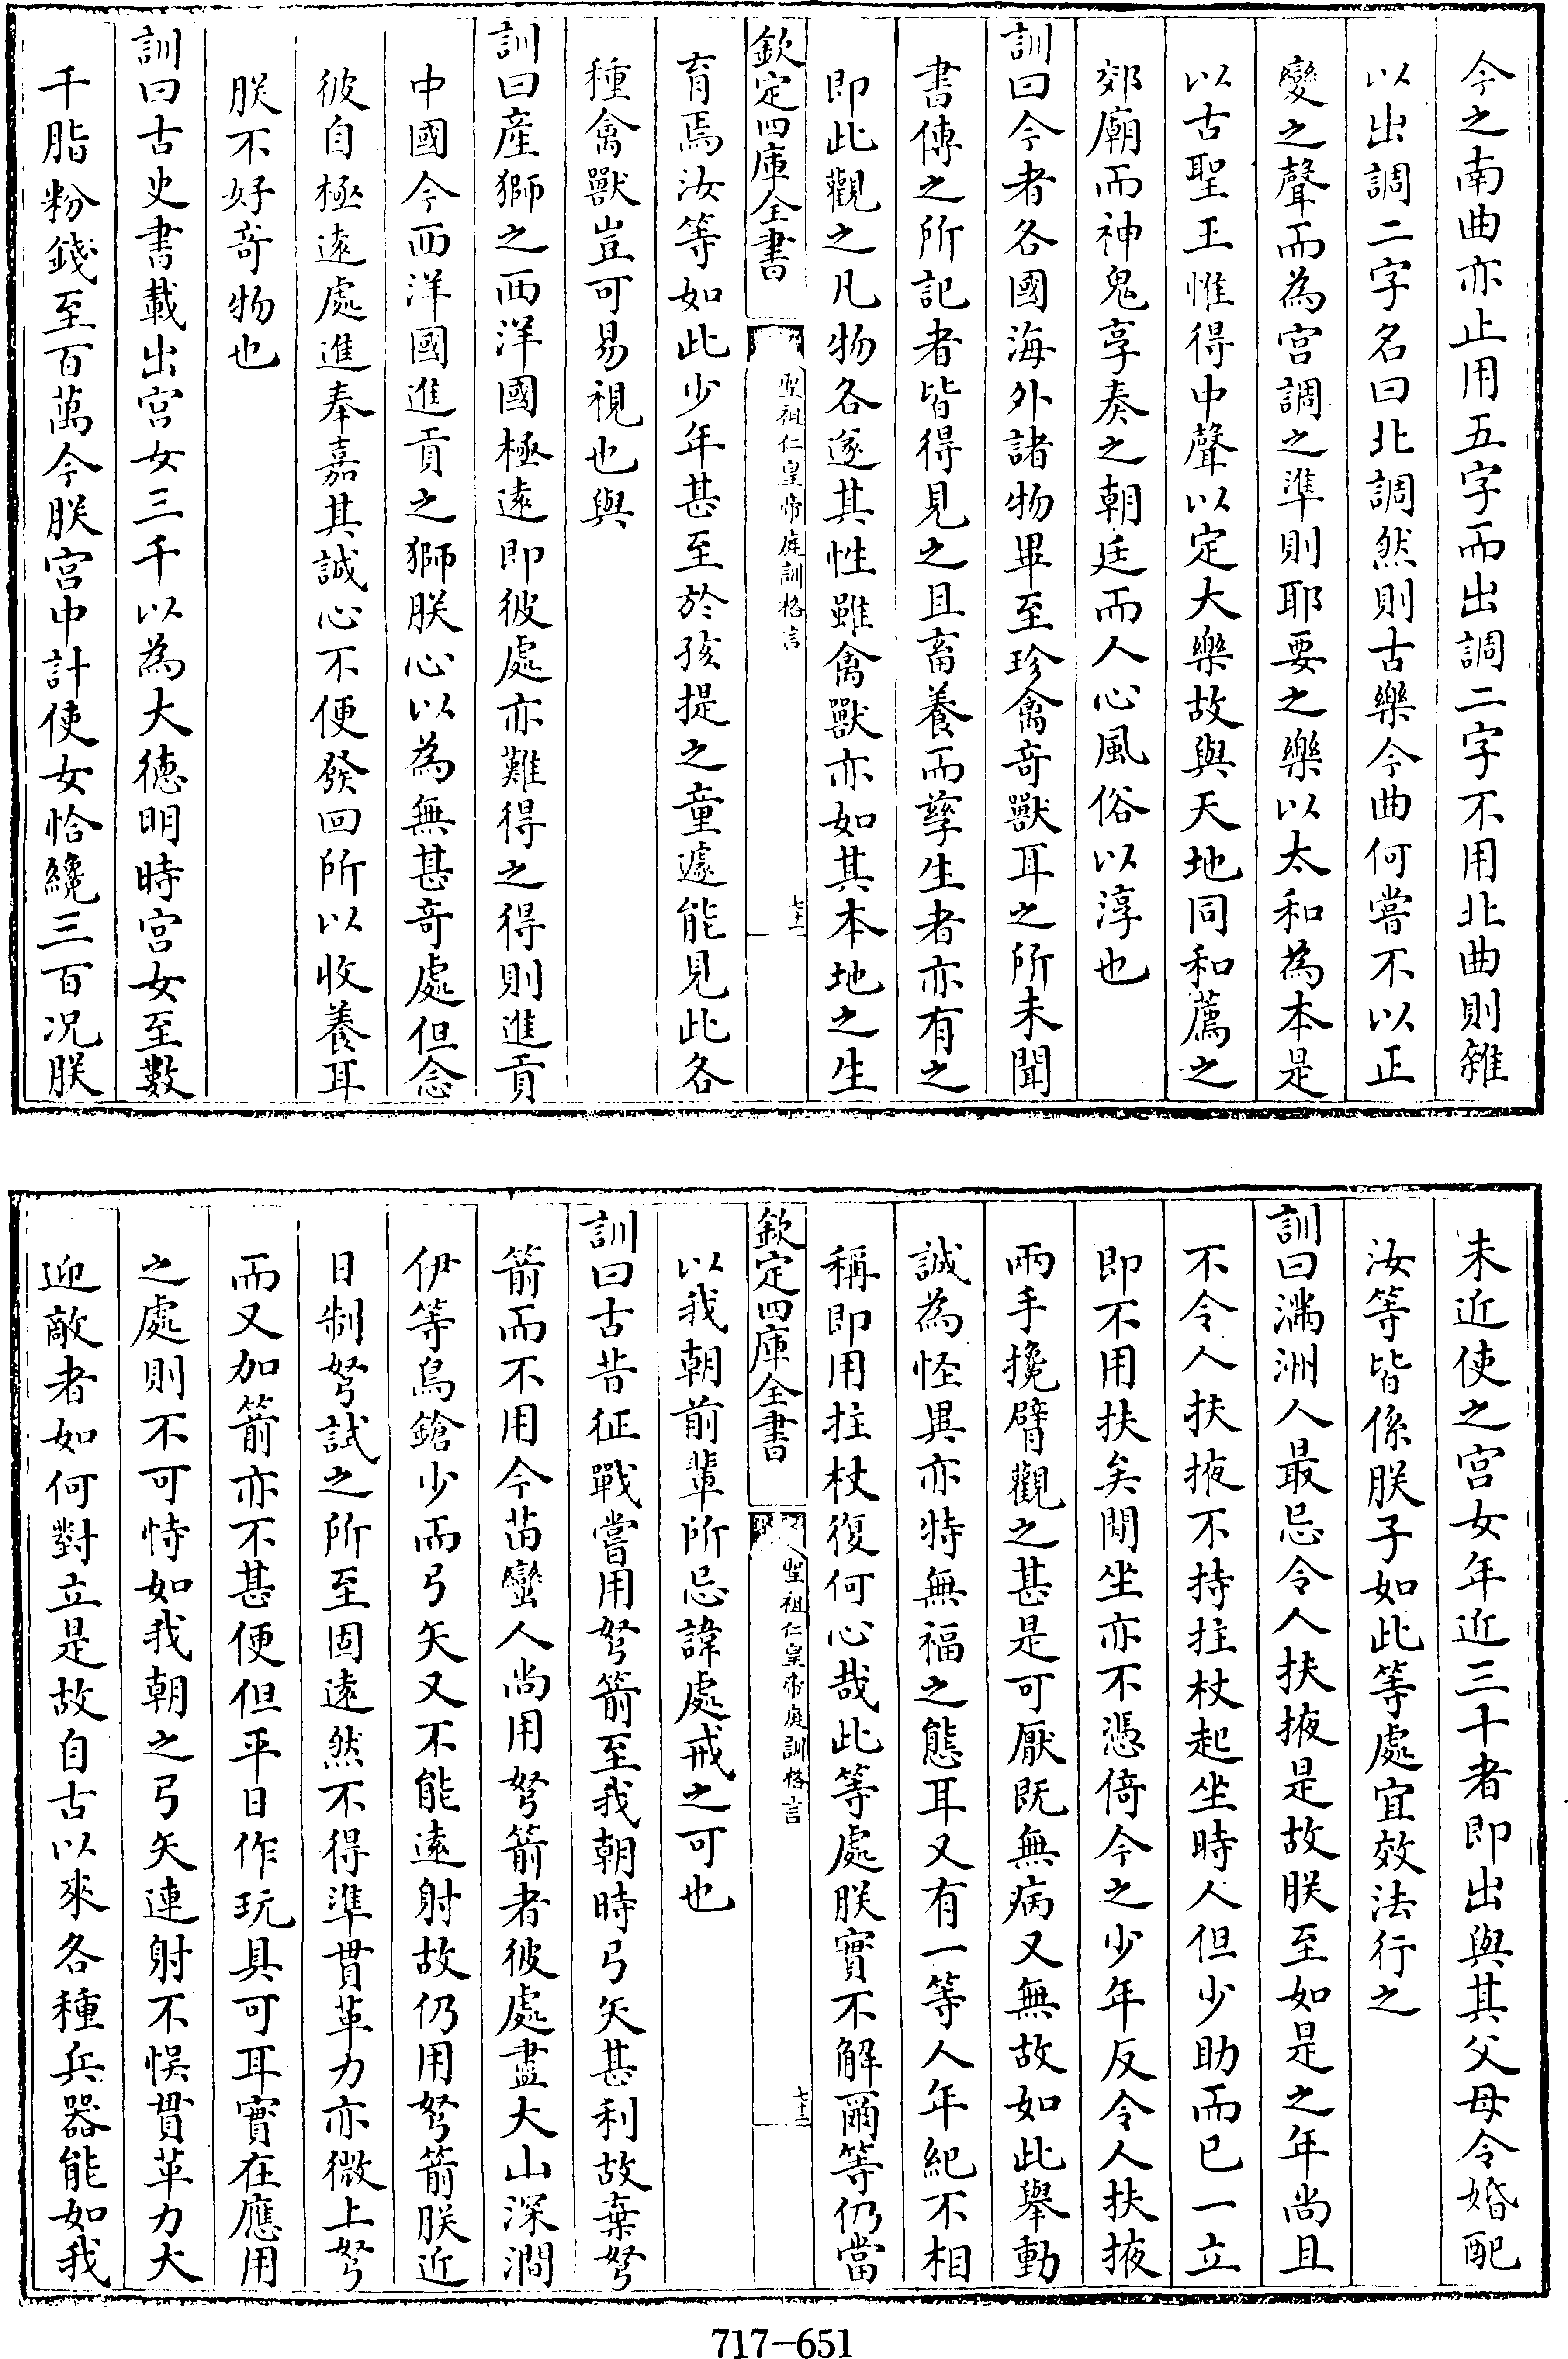 今之南曲亦止用五字而出調二字不用北曲則雜
以出調二字名曰北調然則古樂今曲何嘗不以正
變之聲而為宫調之準則耶要之樂以太和為本是
以古聖王惟得中聲以定大樂故與天地同和薦之
郊廟而神鬼享奏之朝廷而人心風俗以淳也
訓曰今者各國海外諸物畢至珍禽奇獸耳之所未聞
書傳之所記者皆得見之且畜養而孳生者亦有之
即此觀之凡物各遂其性雖禽獸亦如其本地之生
欽定四庫全書
聖祖仁皇帝庭訓格言
七十二
育焉汝等如此少年甚至於孩提之童遽能見此各
種禽獸豈可易視也與
訓曰産獅之西洋國極逺即彼處亦難得之得則進貢
中國今西洋國進貢之獅朕心以為無甚竒處但念
彼自極逺處進奉嘉其誠心不便發回所以收養耳
朕不好竒物也
訓曰古史書載出宫女三千以為大徳明時宫女至數
千脂粉錢至百萬今朕宫中計使女恰纔三百况朕
未近使之宫女年近三十者即出與其父母令婚配
汝等皆係朕子如此等處宜效法行之
訓曰滿洲人最忌令人扶掖是故朕至如是之年尚且
不令人扶掖不持拄杖起坐時人但少助而已一立
即不用扶矣閒坐亦不憑倚今之少年反令人扶掖
兩手攙臂觀之甚是可厭既無病又無故如此舉動
誠為怪異亦特無福之態耳又有一等人年紀不相
稱即用拄杖復何心哉此等處朕實不解爾等仍當
欽定四庫全書
聖祖仁皇帝庭訓格言
七十三
以我朝前輩所忌諱處戒之可也
訓曰古昔征戰嘗用弩箭至我朝時弓矢甚利故棄弩
箭而不用今苗蠻人尚用弩箭者彼處盡大山深澗
伊等鳥鎗少而弓矢又不能逺射故仍用弩箭朕近
日制弩試之所至固逺然不得準貫革力亦微上弩
而又加箭亦不甚便但平日作玩具可耳實在應用
之處則不可恃如我朝之弓矢連射不悮貫革力大
迎敵者如何對立是故自古以來各種兵器能如我
717-651